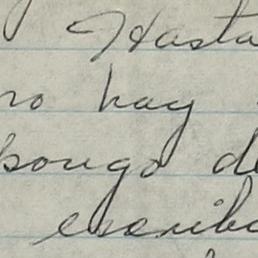 Hasta
no hay
pongo de
escribo